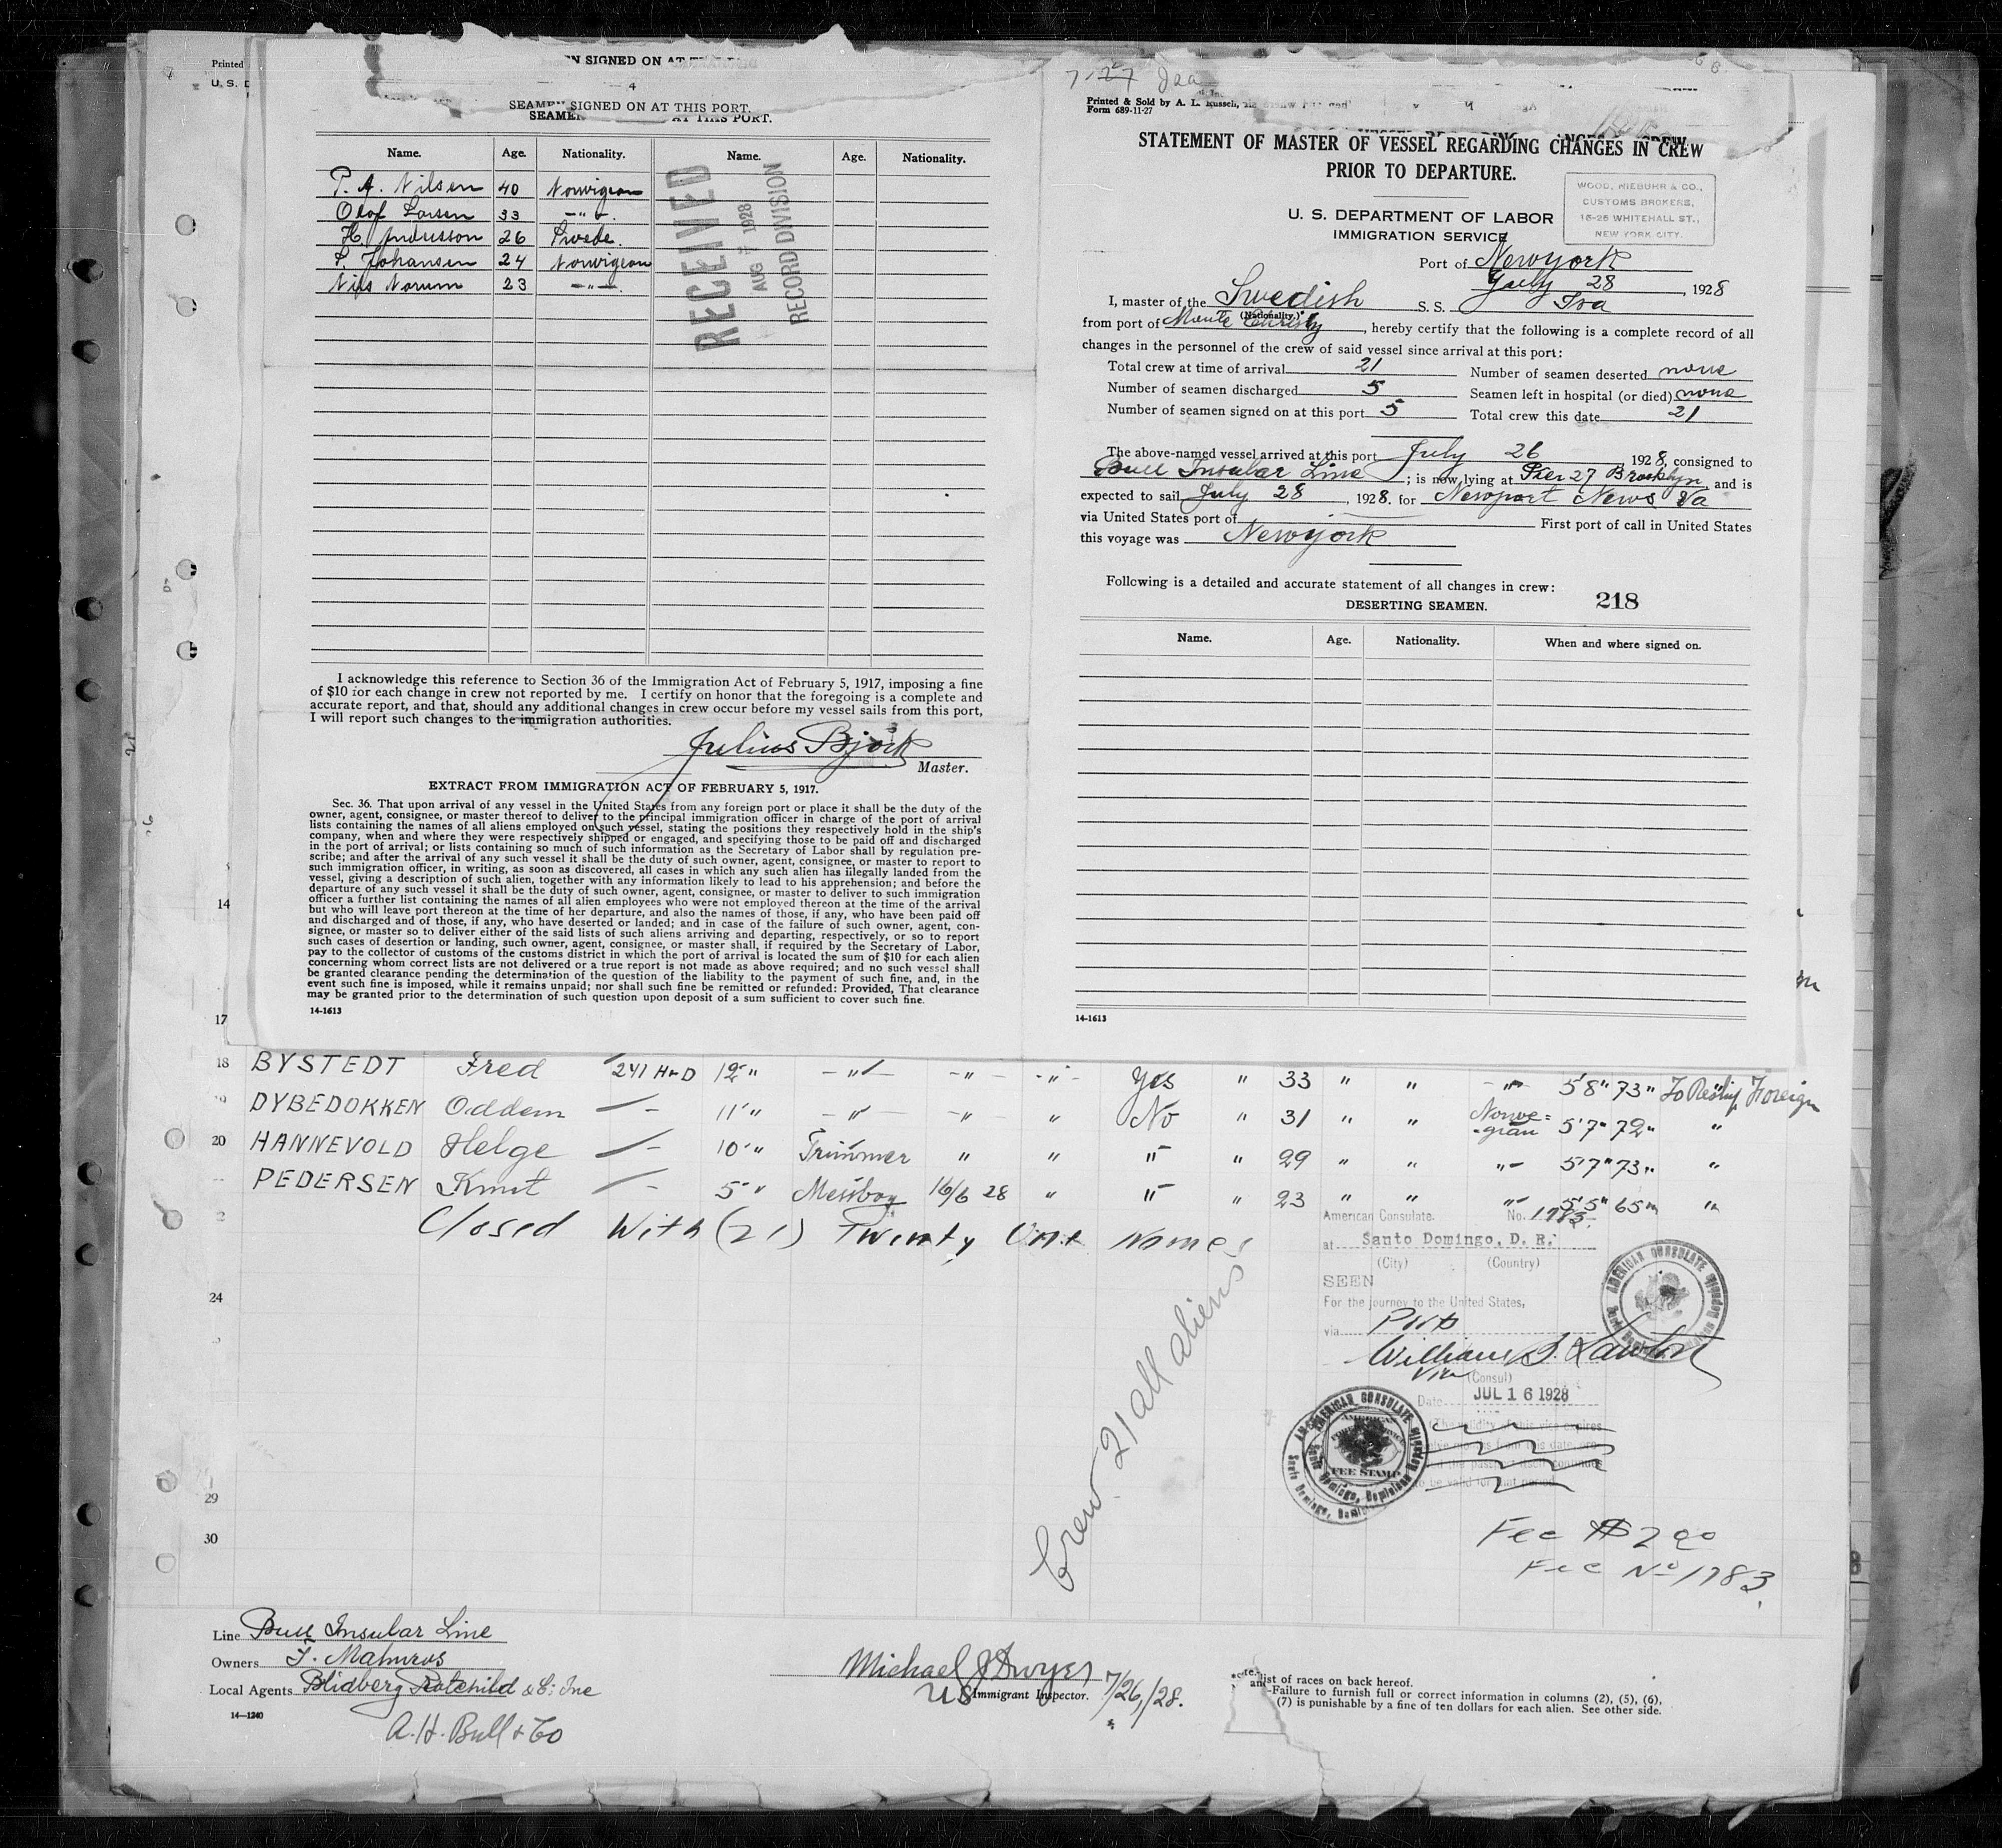 Printed
U. S. D
SIGNED ON AT
4
SEAMEN SIGNED ON AT THIS PORT.
SEAMEN AT THIS PORT.
Name. Age. Nationality. Name. Age. Nationality.
P. A. Nilsen 40 Norvigean
Olof Larsen 33 —"—.
H. Andersson 26 Swede.
S. Johansen 24 Norvigean
Nils Norum 23 —"—.
RECEIVED
AUG 7 1928
RECORD DIVISION
I acknowledge this reference to Section 36 of the Immigration Act of February 5, 1917, imposing a fine
of $10 for each change in crew not reported by me. I certify on honor that the foregoing is a complete and
accurate report, and that, should any additional changes in crew occur before my vessel sails from this port,
I will report such changes to the immigration authorities.
Julius Björk
Master.
EXTRACT FROM IMMIGRATION ACT OF FEBRUARY 5, 1917.
Sec. 36. That upon arrival of any vessel in the United States from any foreign port or place it shall be the duty of the
owner, agent, consignee, or master thereof to deliver to the principal immigration officer in charge of the port of arrival
lists containing the names of all aliens employed on such vessel, stating the positions they respectively hold in the ship's
company, when and where they were respectively shipped or engaged, and specifying those to be paid off and discharged
in the port of arrival; or lists containing so much of such information as the Secretary of Labor shall by regulation pre-
scribe; and after the arrival of any such vessel it shall be the duty of such owner, agent, consignee, or master to report to
such immigration officer, in writing, as soon as discovered, all cases in which any such alien has illegally landed from the
vessel, giving a description of such alien, together with any information likely to lead to his apprehension; and before the
departure of any such vessel it shall be the duty of such owner, agent, consignee, or master to deliver to such immigration
officer a further list containing the names of all alien employees who were not employed thereon at the time of the arrival
but who will leave port thereon at the time of her departure, and also the names of those, if any, who have been paid off
and discharged and of those, if any, who have deserted or landed; and in case of the failure of such owner, agent, con-
signee, or master so to deliver either of the said lists of such aliens arriving and departing, respectively, or so to report
such cases of desertion or landing, such owner, agent, consignee, or master shall, if required by the Secretary of Labor,
pay to the collector of customs of the customs district in which the port of arrival is located the sum of $10 for each alien
concerning whom correct lists are not delivered or a true report is not made as above required; and no such vessel shall
be granted clearance pending the determination of the question of the liability to the payment of such fine, and, in the
event such fine is imposed, while it remains unpaid; nor shall such fine be remitted or refunded: Provided, That clearance
may be granted prior to the determination of such question upon deposit of a sum sufficient to cover such fine.
14-1613
7-27
Printed & Sold by A. L. Russell,
Form 689-11-27
STATEMENT OF MASTER OF VESSEL REGARDING CHANGES IN CREW
PRIOR TO DEPARTURE.
WOOD, NIEBUHR & CO.,
CUSTOMS BROKERS,
15-25 WHITEHALL ST.,
NEW YORK CITY.
U. S. DEPARTMENT OF LABOR
IMMIGRATION SERVICE
Port of Newyork
July 28, 1928
I, master of the Swedish S. S. Isa
(Nationality.)
from port of Monte Christy, hereby certify that the following is a complete record of all
changes in the personnel of the crew of said vessel since arrival at this port:
Total crew at time of arrival 21 Number of seamen deserted none
Number of seamen discharged 5 Seamen left in hospital (or died) none
Number of seamen signed on at this port 5 Total crew this date 21
The above-named vessel arrived at this port July 26 1928, consigned to
Bull Insular Line; is now lying at Pier 27 Brooklyn, and is
expected to sail July 28, 1928. for Newport News Va
via United States port of First port of call in United States
this voyage was Newyork
Following is a detailed and accurate statement of all changes in crew:
DESERTING SEAMEN. 218
Name. Age. Nationality. When and where signed on.
14-1613
14
17
18 BYSTEDT Fred 241 H-D 12" —"— —"— —"— Yes " 33 " " —"— 5'8" 73" To Reship Foreign
DYBEDOKKEN Oddem — 11" —"— —"— " No " 31 " " Norwe=
-gian 5'7" 72" "
20 HANNEVOLD Helge — 10" Trimmer " " " " 29 " " " 5'7" 73" "
PEDERSEN Knut — 5" Messboy 16/6 28 " " " 23 " " " 5'5" 65" "
Closed With (21) Twenty One Names
24
29
30
Crew 21 all aliens
American Consulate. No. 1783.
at Santo Domingo, D. R.
(City) (Country)
SEEN
For the journey to the United States,
via Ports
William B. Lawton
Vice (Consul)
Date JUL 16 1928
AMERICAN CONSULATE
AMERICAN CONSULATE
FEE STAMP
Santo Domingo, Dominican Republic
Fee $2.00
Fee No 1783.
Line Bull Insular Line
Owners
Local Agents Blidberg Rotchild & Co Inc
14—1240
A. H. Bull & Co
Michael J Dwyer
US Immigrant Inspector. 7/26/28.
list of races on back hereof.
Failure to furnish full or correct information in columns (2), (5), (6),
(7) is punishable by a fine of ten dollars for each alien. See other side.